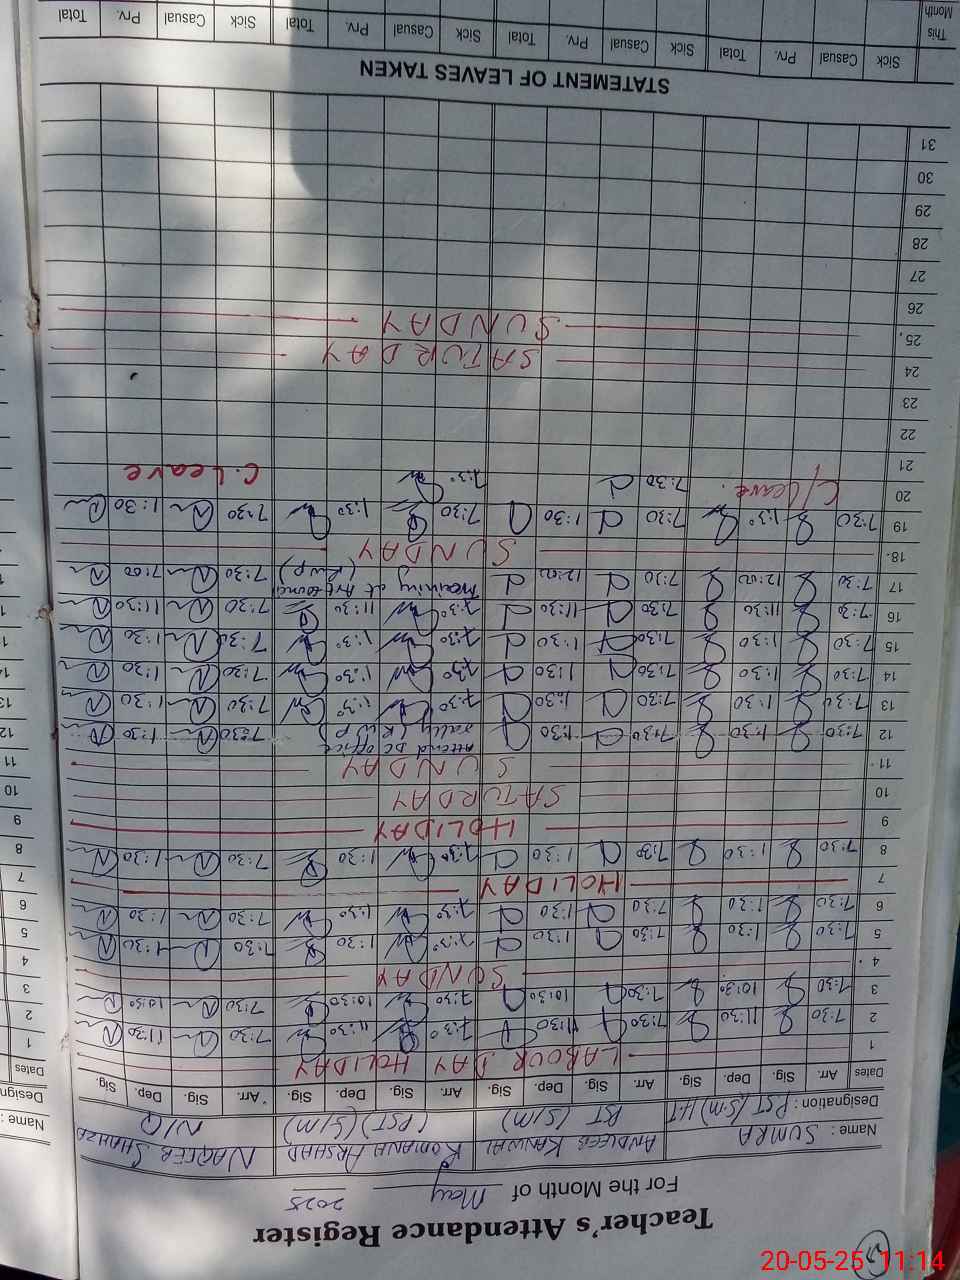 Teacher's Attendance Register
For the Month of May 2025
Name : SUMRA ANDLEEB KANWAL ROMANA ARSHAD NAQEEB SHAHZA
Designation : PST (S/m) H-T PST (S/M) (PST)(S/M) N/Q
Dates Arr. Sig. Dep. Sig. Arr. Sig. Dep. Sig. Arr. Sig. Dep. Sig. Arr. Sig. Dep. Sig.
1 LABOUR DAY HOLIDAY
2 7:30 11:30 7:30 11:30 7:30 11:30 7:30 11:30
3 7:30 10:30 7:30 10:30 7:30 10:30 7:30 10:30
4 SUNDAY
5 7:30 1:30 7:30 1:30 7:30 1:30 7:30 1:30
6 7:30 1:30 7:30 1:30 7:30 1:30 7:30 1:30
7 HOLIDAY
8 7:30 1:30 7:30 1:30 7:30 1:30 7:30 1:30
9 HOLIDAY
10 SATURDAY
11 SUNDAY
12 7:30 1:30 7:30 1:30 Attend DC office rally (Rwp) 7:30 1:30
13 7:30 1:30 7:30 1:30 7:30 1:30 7:30 1:30
14 7:30 1:30 7:30 1:30 7:30 1:30 7:30 1:30
15 7:30 1:30 7:30 1:30 7:30 1:30 7:30 1:30
16 7:30 11:30 7:30 11:30 7:30 11:30 7:30 11:30
17 7:30 12:00 7:30 12:00 7:30 7:00
18 SUNDAY
19 7:30 1:30 7:30 1:30 7:30 1:30 7:30 1:30
20 C/leave. 7:30 7:30 C.Leave
21
22
23
24 SATURDAY
25 SUNDAY
26
27
28
29
30
31
STATEMENT OF LEAVES TAKEN
Sick Casual Prv. Total Sick Casual Prv. Total Sick Casual Prv. Total Sick Casual Prv. Total
This Month
Dates
Designa
Name :
1
2
3
4
5
6
7
8
9
10
11
12
13
14
20-05-25 11:14